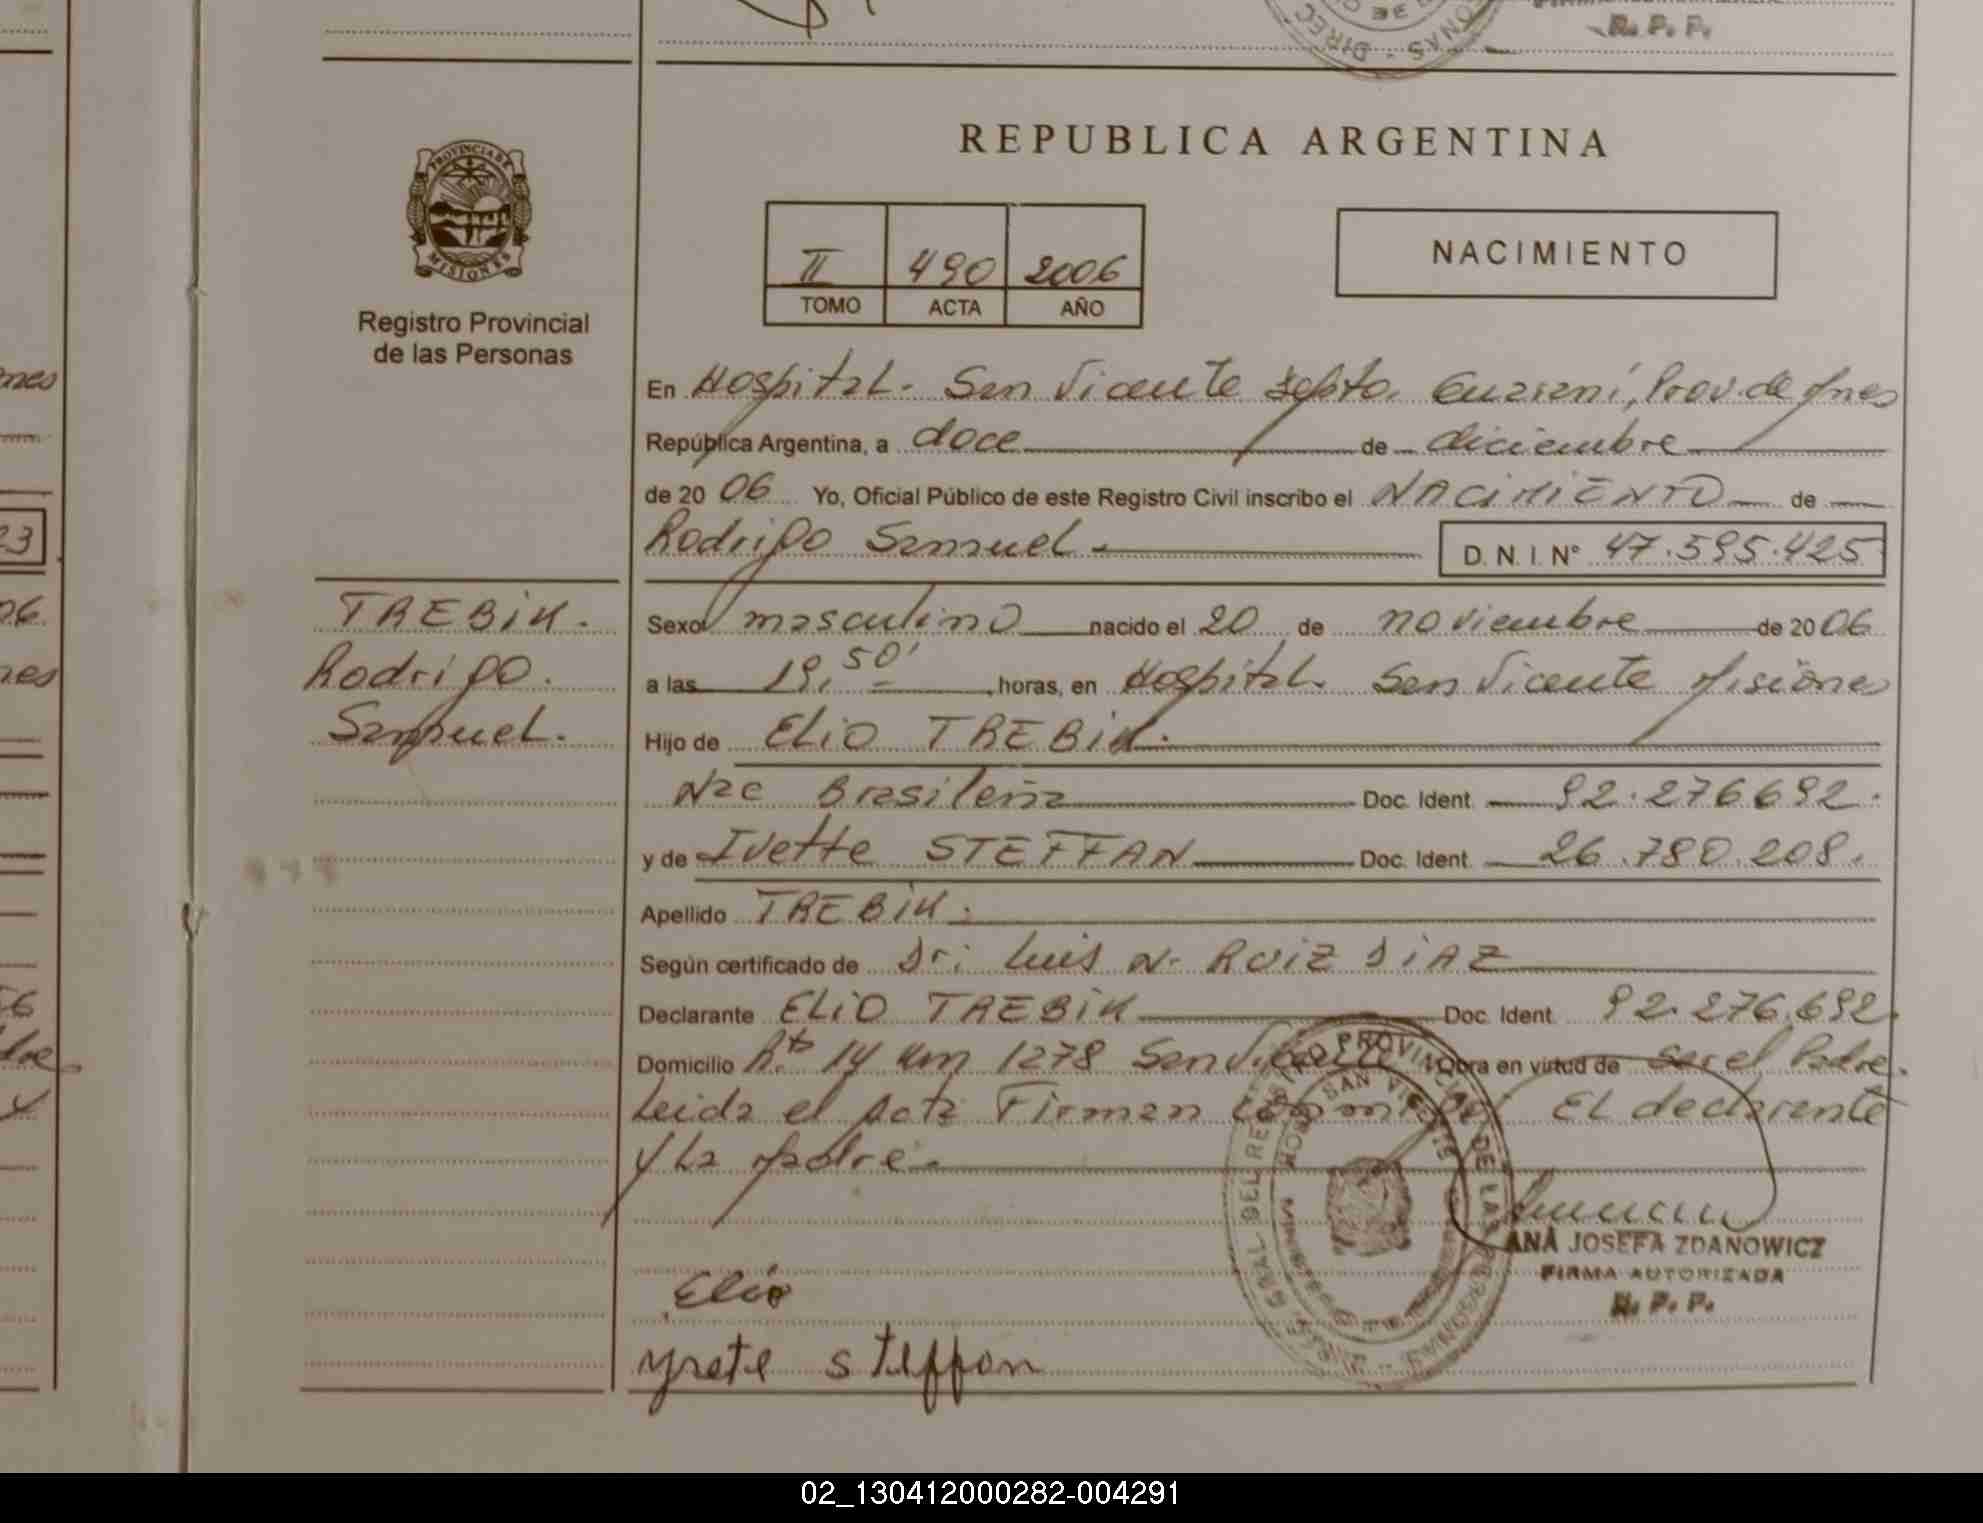 R. P. P.
REPUBLICA ARGENTINA
PROVINCIA DE
MISIONES
Registro Provincial
de las Personas
II 490 2006
TOMO ACTA AÑO
NACIMIENTO
En Hospital. San Vicente Depto. Guaraní, Prov. de Mnes
República Argentina, a doce de diciembre
de 2006 Yo, Oficial Público de este Registro Civil inscribo el NACIMIENTO de
Rodrigo Samuel D. N. I. N° 47.595.425
TREBIK.
Rodrigo.
Samuel.
Sexo masculino nacido el 20 de noviembre de 2006
a las 19,50' horas, en Hospital. San Vicente Misiones
Hijo de ELIO TREBIK.
Nac Brasileña Doc. Ident. 92.276692.
y de Ivette STEFFAN Doc. Ident. 26.780.208.
Apellido TREBIK.
Según certificado de Dr: Luis N. RUIZ DIAZ
Declarante ELIO TREBIK Doc. Ident. 92.276.692.
Domicilio Rta 14 Km 1278 San Vicente Obra en virtud de ser el Padre.
Leida el acta Firman conmigo, EL declarante
y La Madre.
ANA JOSEFA ZDANOWICZ
FIRMA AUTORIZADA
R. P. P.
Elio
yvete steffan
02_130412000282-004291